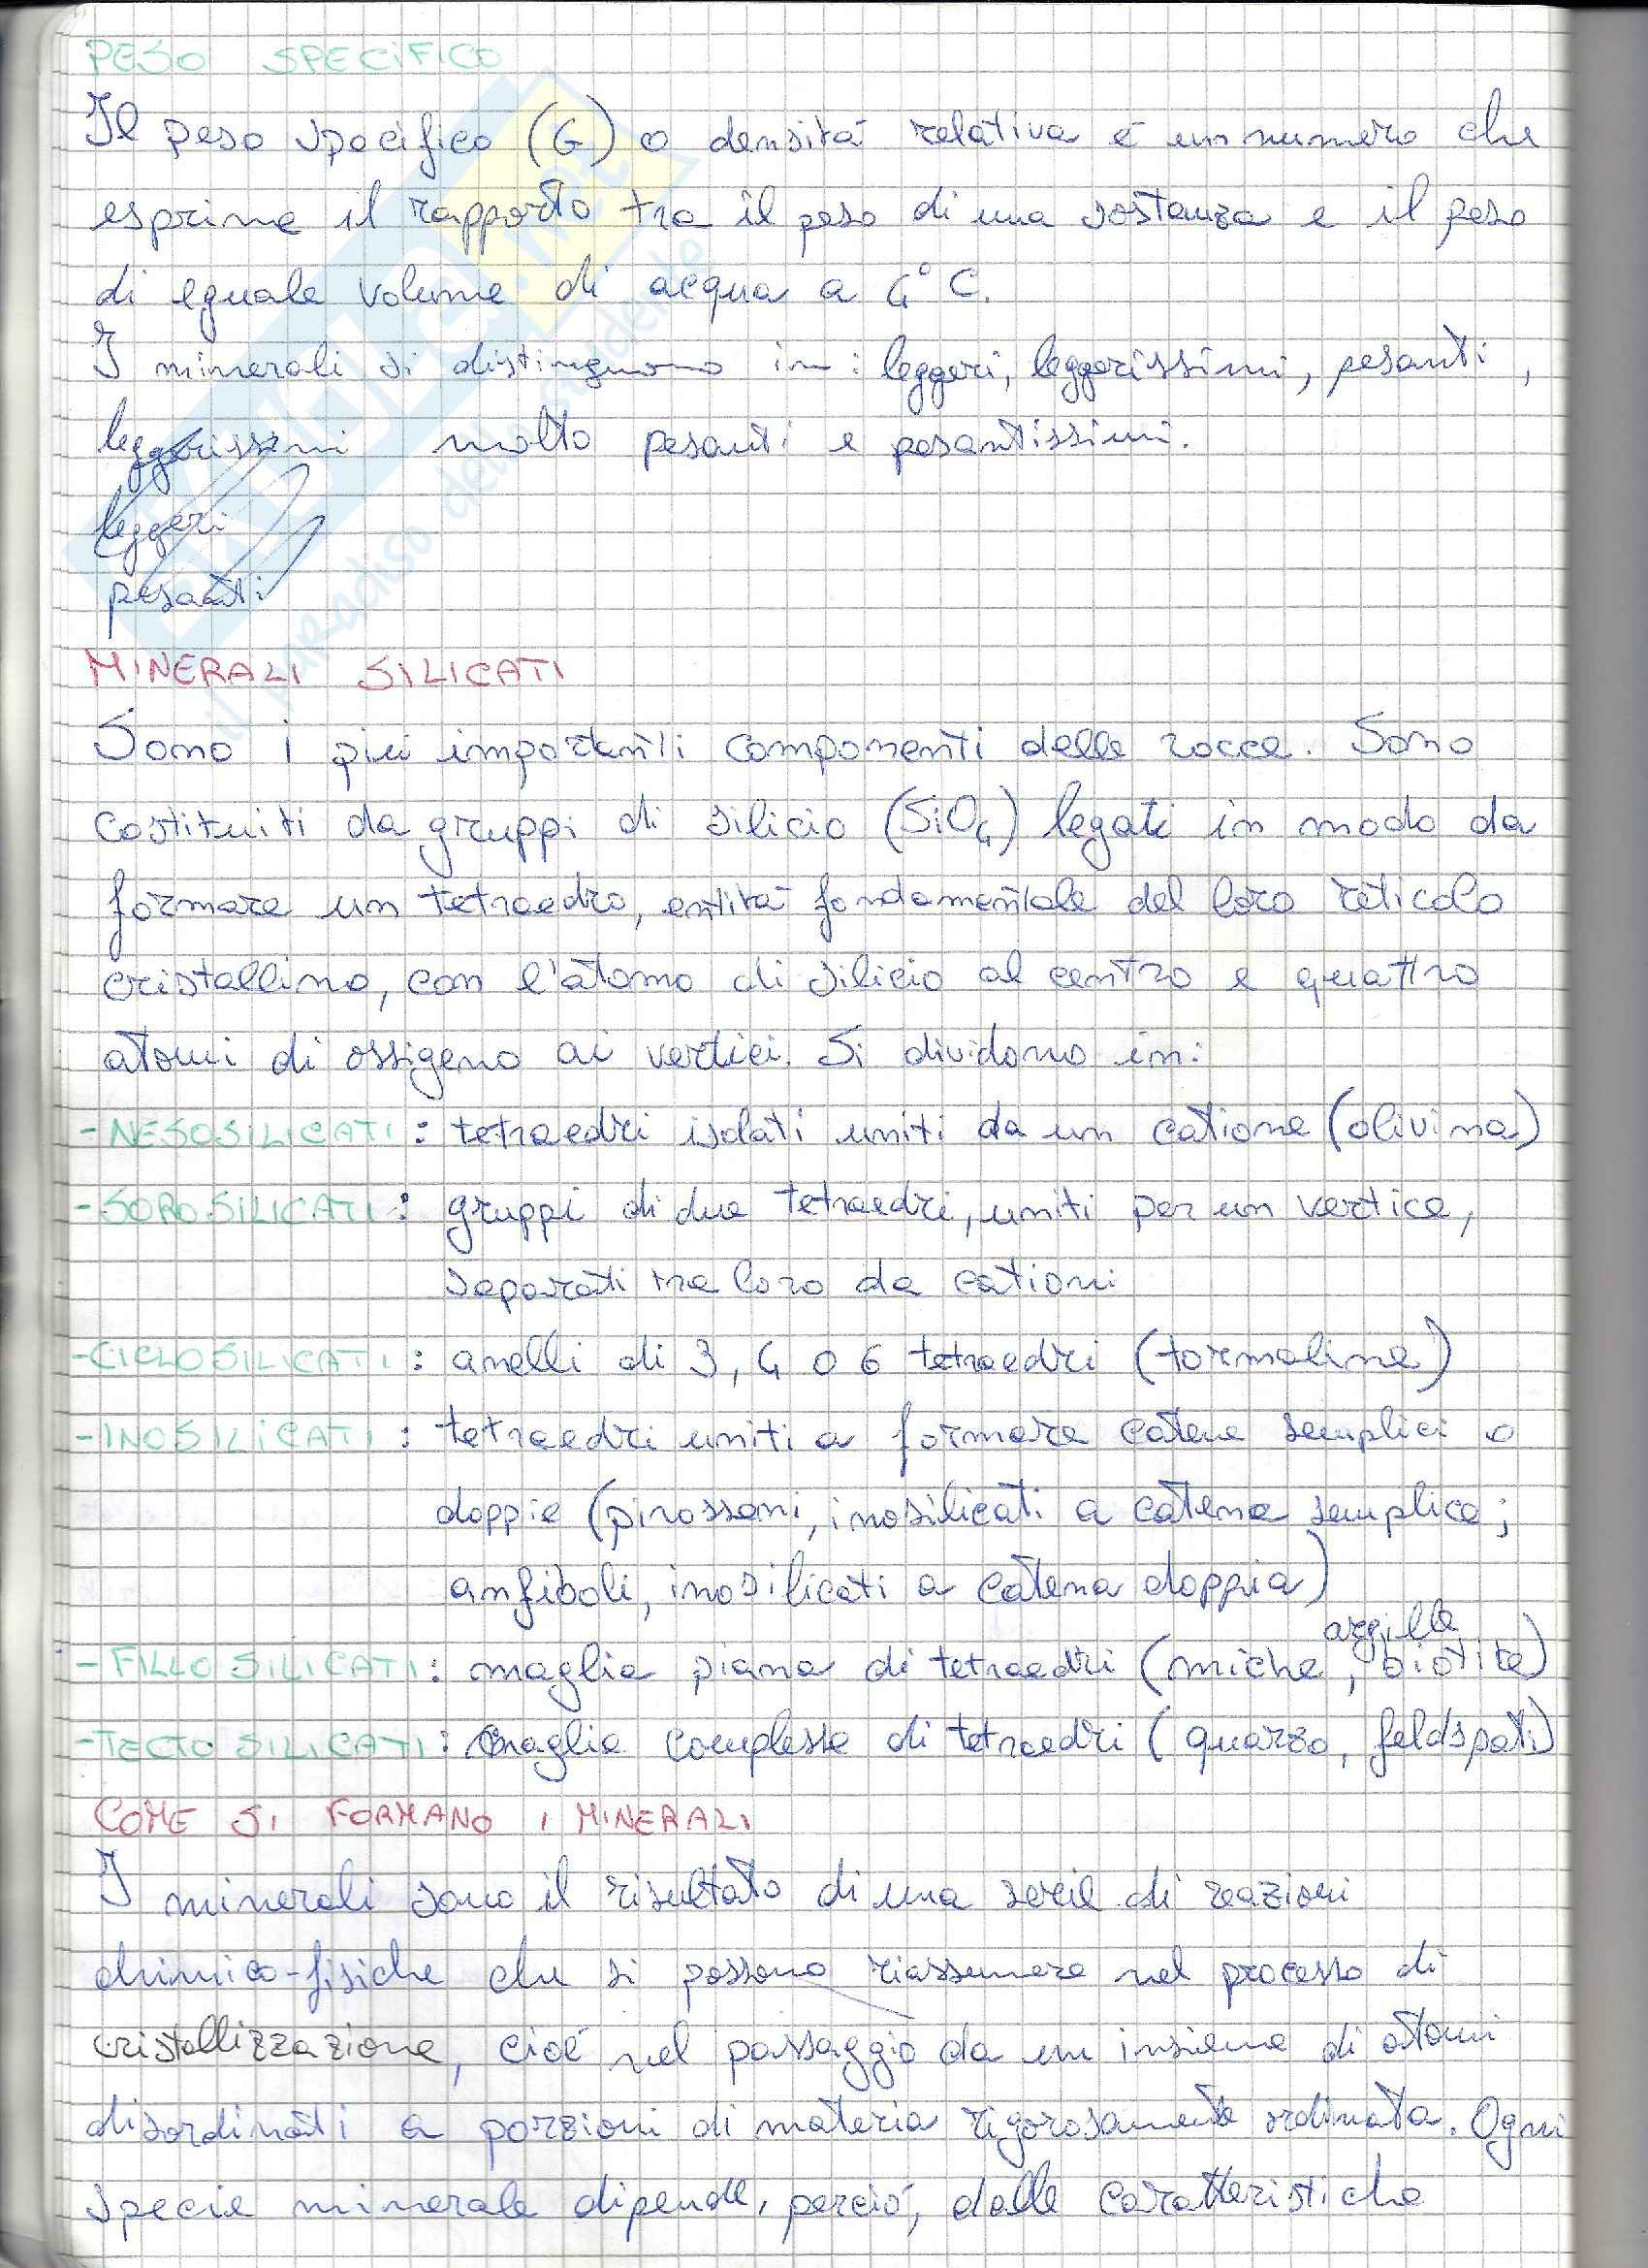 PESO SPECIFICO
Il peso specifico (G) o densità relativa è un numero che
esprime il rapporto tra il peso di una sostanza e il peso
di eguale volume di acqua a 4° C.
I minerali si distinguono in: leggeri, leggerissimi, pesanti,
leggerissimi molto pesanti e pesantissimi.
leggeri
pesanti
MINERALI SILICATI
Sono i più importanti componenti delle rocce. Sono
costituiti da gruppi di silicio (SiO4) legati in modo da
formare un tetraedro, entità fondamentale del loro reticolo
cristallino, con l'atomo di silicio al centro e quattro
atomi di ossigeno ai vertici. Si dividono in:
- NESOSILICATI: tetraedri isolati uniti da un catione (olivina)
- SOROSILICATI: gruppi di due tetraedri, uniti per un vertice,
separati tra loro da cationi
- CICLOSILICATI: anelli di 3, 4 o 6 tetraedri (tormaline)
- INOSILICATI: tetraedri uniti a formare catene semplici o
doppie (pirosseni, inosilicati a catena semplice;
anfiboli, inosilicati a catena doppia)
argille
- FILLOSILICATI: maglia piana di tetraedri (miche, biotite)
- TECTOSILICATI: maglie complesse di tetraedri (quarzo, feldspati)
COME SI FORMANO I MINERALI
I minerali sono il risultato di una serie di reazioni
chimico-fisiche che si possono riassumere nel processo di
cristallizzazione, cioè nel passaggio da un insieme di atomi
disordinati a porzioni di materia rigorosamente ordinata. Ogni
specie minerale dipende, perciò, dalle caratteristiche
il paradiso dello studente